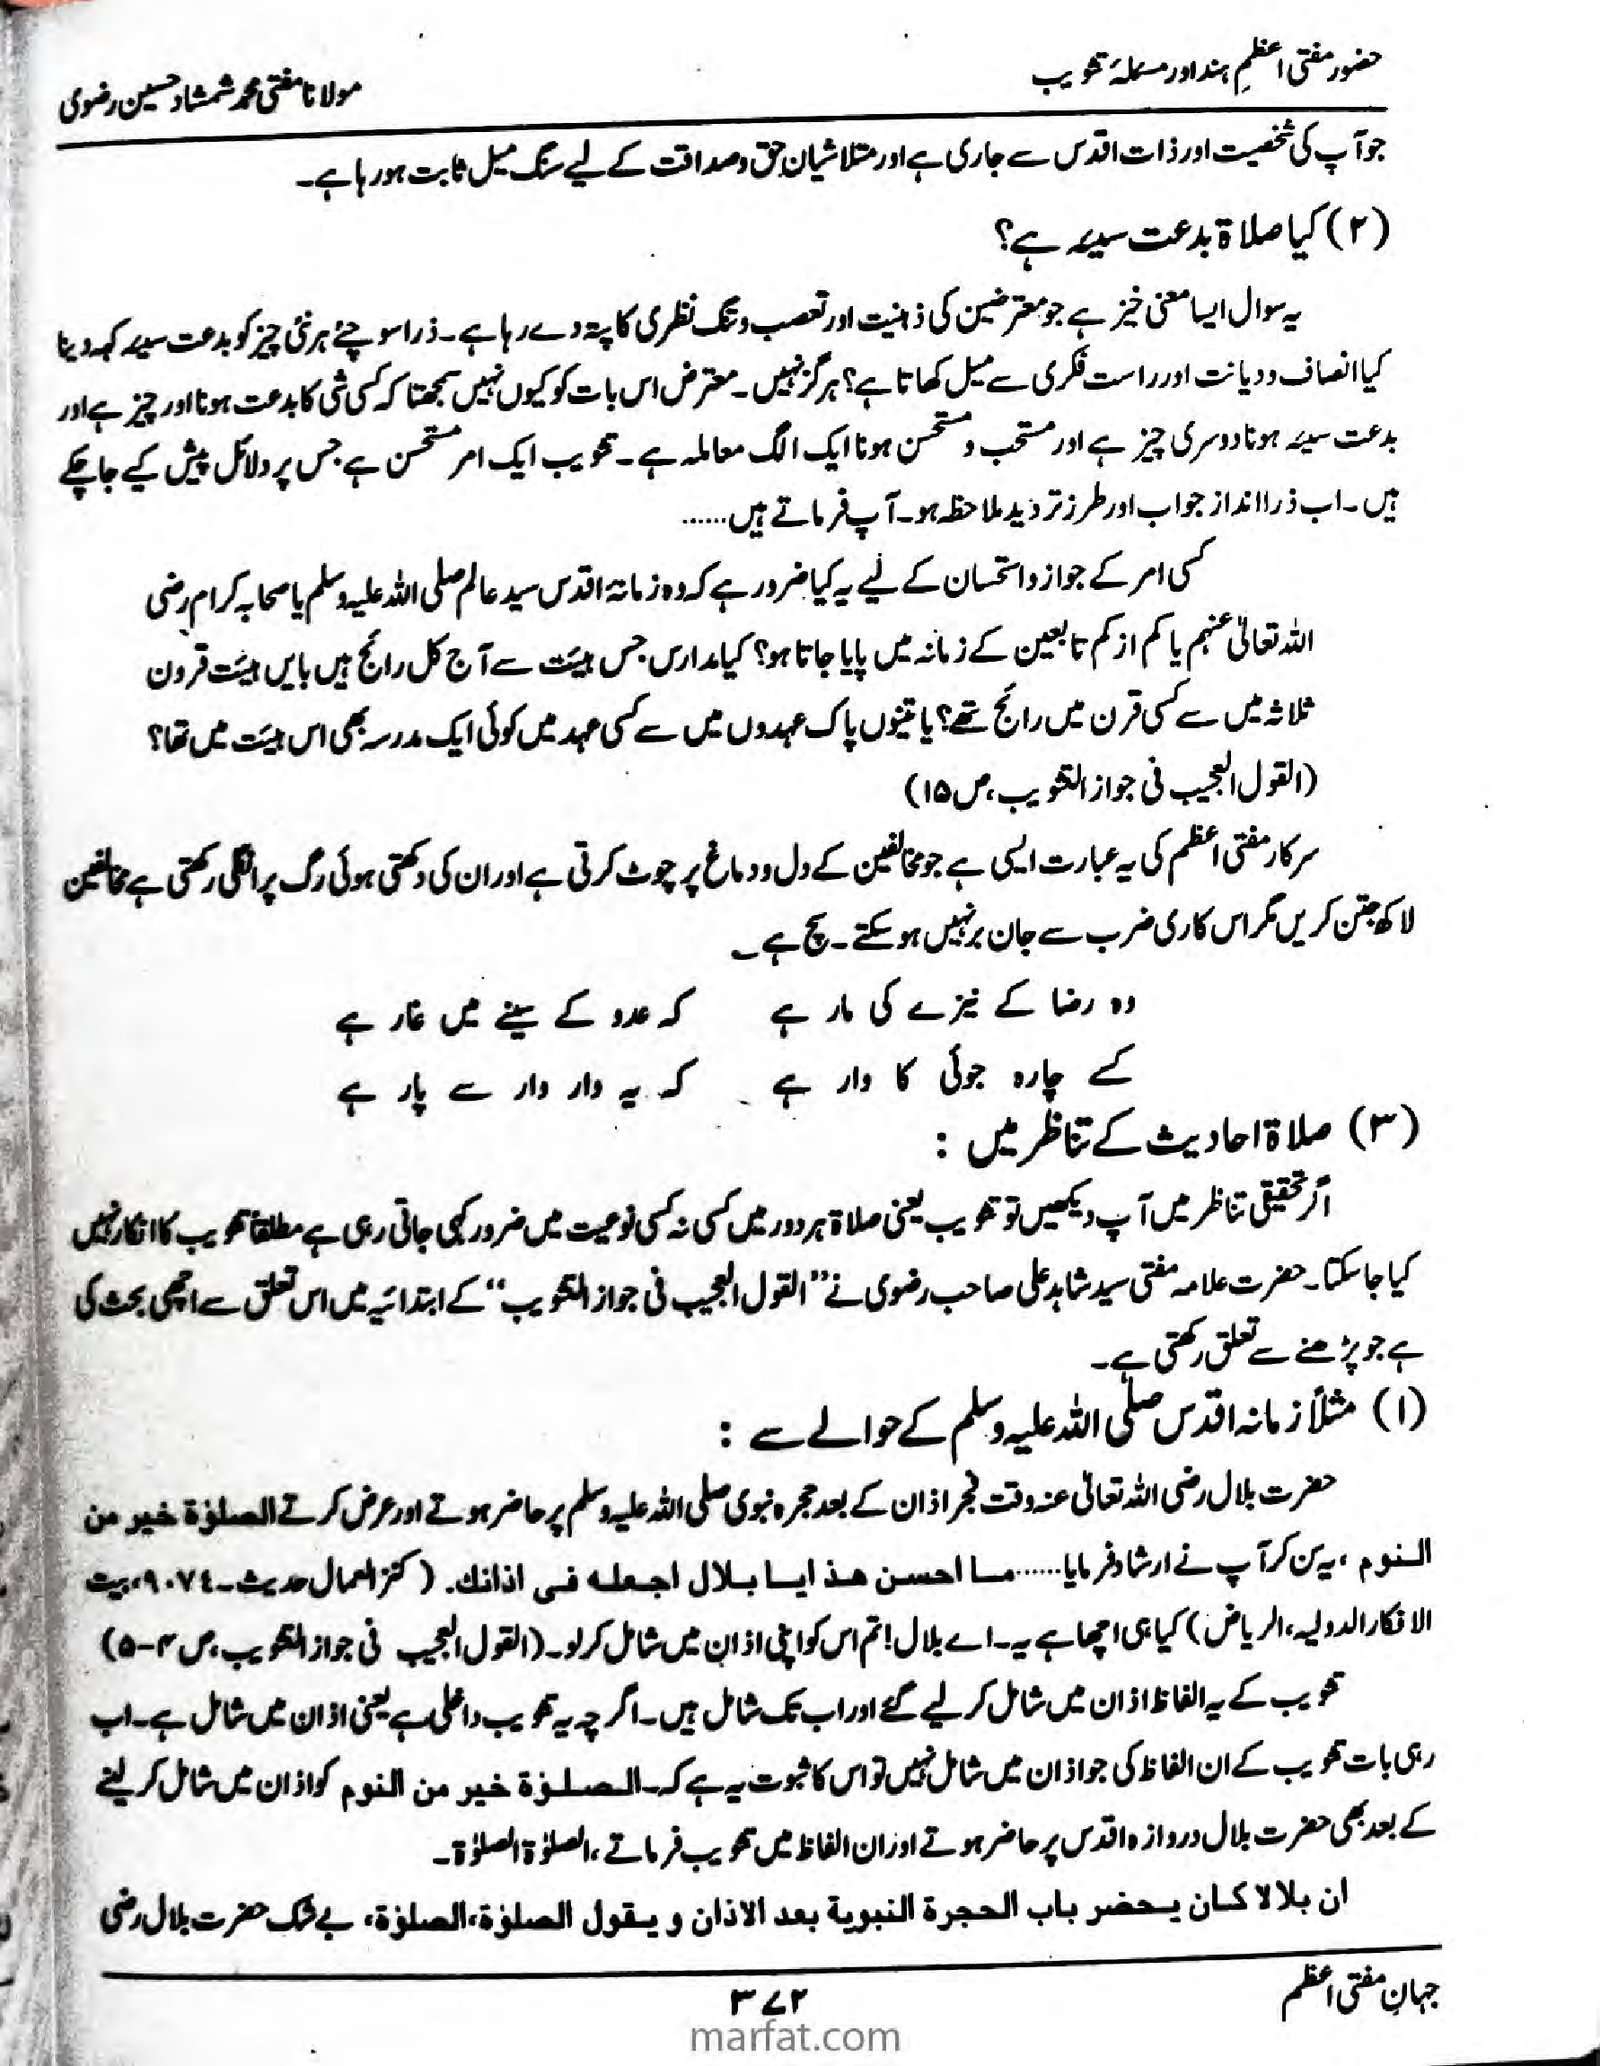 حضور مفتی اعظمِ ہند اور مسئلۂ تثویب
مولانا مفتی محمد شمشاد حسین رضوی
جو آپ کی شخصیت اور ذات اقدس سے جاری ہے اور متلاشیان حق و صداقت کے لیے سنگ میل ثابت ہو رہا ہے۔
(۲) کیا صلاۃ بدعت سیئہ ہے؟
یہ سوال ایسا معنی خیز ہے جو معترضین کی ذہنیت اور تعصب و تنگ نظری کا پتہ دے رہا ہے۔ ذرا سوچئے ہر نئی چیز کو بدعت سیئہ کہہ دینا
کیا انصاف و دیانت اور راست فکری سے میل کھاتا ہے؟ ہرگز نہیں۔ معترض اس بات کو کیوں نہیں سمجھتا کہ کسی شی کا بدعت ہونا اور چیز ہے اور
بدعت سیئہ ہونا دوسری چیز ہے اور مستحب و مستحسن ہونا ایک الگ معاملہ ہے۔ تثویب ایک امر مستحسن ہے جس پر دلائل پیش کیے جا چکے
ہیں۔ اب ذرا انداز جواب اور طرز تردید ملاحظہ ہو۔ آپ فرماتے ہیں......
کسی امر کے جواز و استحسان کے لیے یہ کیا ضرور ہے کہ وہ زمانۂ اقدس سید عالم صلی اللہ علیہ وسلم یا صحابہ کرام رضی
اللہ تعالیٰ عنہم یا کم از کم تابعین کے زمانہ میں پایا جاتا ہو؟ کیا مدارس جس ہیئت سے آج کل رائج ہیں بایں ہیئت قرون
ثلاثہ میں سے کسی قرن میں رائج تھے؟ یا تینوں پاک عہدوں میں سے کسی عہد میں کوئی ایک مدرسہ بھی اس ہیئت میں تھا؟
(القول العجیب فی جواز التثویب، ص ۱۵)
سرکار مفتی اعظم کی یہ عبارت ایسی ہے جو مخالفین کے دل و دماغ پر چوٹ کرتی ہے اور ان کی دکھتی ہوئی رگ پر انگلی رکھتی ہے مخالفین
لاکھ جتن کریں مگر اس کاری ضرب سے جان بر نہیں ہو سکتے۔ سچ ہے ۔
وہ رضا کے نیزے کی مار ہے کہ عدو کے سینے میں غار ہے
کسے چارہ جوئی کا وار ہے کہ یہ وار وار سے پار ہے
(۳) صلاۃ احادیث کے تناظر میں :
اگر تحقیقی تناظر میں آپ دیکھیں تو تثویب یعنی صلاۃ ہر دور میں کسی نہ کسی نوعیت میں ضرور کہی جاتی رہی ہے مطلقاً تثویب کا انکار نہیں
کیا جا سکتا۔ حضرت علامہ مفتی سید شاہد علی صاحب رضوی نے ”القول العجیب فی جواز التثویب“ کے ابتدائیہ میں اس تعلق سے اچھی بحث کی
ہے جو پڑھنے سے تعلق رکھتی ہے۔
(۱) مثلاً زمانہ اقدس صلی اللہ علیہ وسلم کے حوالے سے :
حضرت بلال رضی اللہ تعالیٰ عنہ وقت فجر اذان کے بعد حجرہ نبوی صلی اللہ علیہ وسلم پر حاضر ہوتے اور عرض کرتے الصلوٰۃ خیر من
النوم ، یہ سن کر آپ نے ارشاد فرمایا......ما احسن هذا يا بلال اجعله فی اذانك. ( کنز العمال حدیث۔ ۹۰۷٤، بیت
الافکار الدولیہ، الریاض) کیا ہی اچھا ہے یہ۔ اے بلال! تم اس کو اپنی اذان میں شامل کر لو۔ (القول العجیب فی جواز التثویب، ص ۴-۵)
تثویب کے یہ الفاظ اذان میں شامل کر لیے گئے اور اب تک شامل ہیں۔ اگرچہ یہ تثویب داخلی ہے یعنی اذان میں شامل ہے۔ اب
رہی بات تثویب کے ان الفاظ کی جو اذان میں شامل نہیں تو اس کا ثبوت یہ ہے کہ۔ الصلوٰۃ خیر من النوم کو اذان میں شامل کر لینے
کے بعد بھی حضرت بلال دروازہ اقدس پر حاضر ہوتے اور ان الفاظ میں تثویب فرماتے ، الصلوٰۃ الصلوٰۃ۔
ان بلالا كان يحضر باب الحجرة النبوية بعد الاذان و يقول الصلوٰة، الصلوٰة، بے شک حضرت بلال رضی
جہانِ مفتی اعظم
۳۷۲
marfat.com